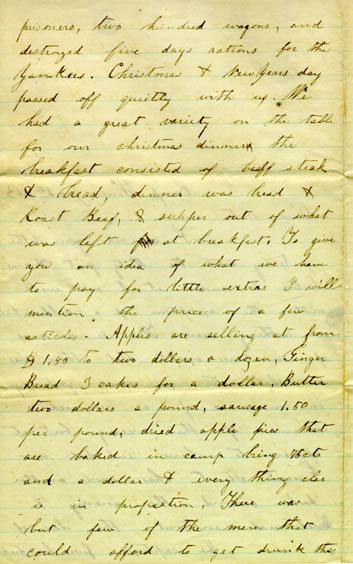 prisoners, two hundred wagons, and
destroyed five days rations for the
Yankees. Christmas & New Years day
passed off quietly with us. We
had a great variety on the table
for our christmas dinner, the
breakfast consisted of beef steak
& bread, dinner was bread &
Roast Beef, & supper out of what
was left at breakfast. To give
you an idea of what we have
to pay for little extras I will
mention the price of a few
article. Apples are selling at from
$1.50 to two dollars a dozen, Ginger
Bread 3 cakes for a dollar, Butter
two dollars a pound, sausage 1.50
per pound, dried apple pies that
are baked in camp bring 75cts
and a dollar & every thing else
is in proportion, There was
but few of the mess that
could afford to get drunk this